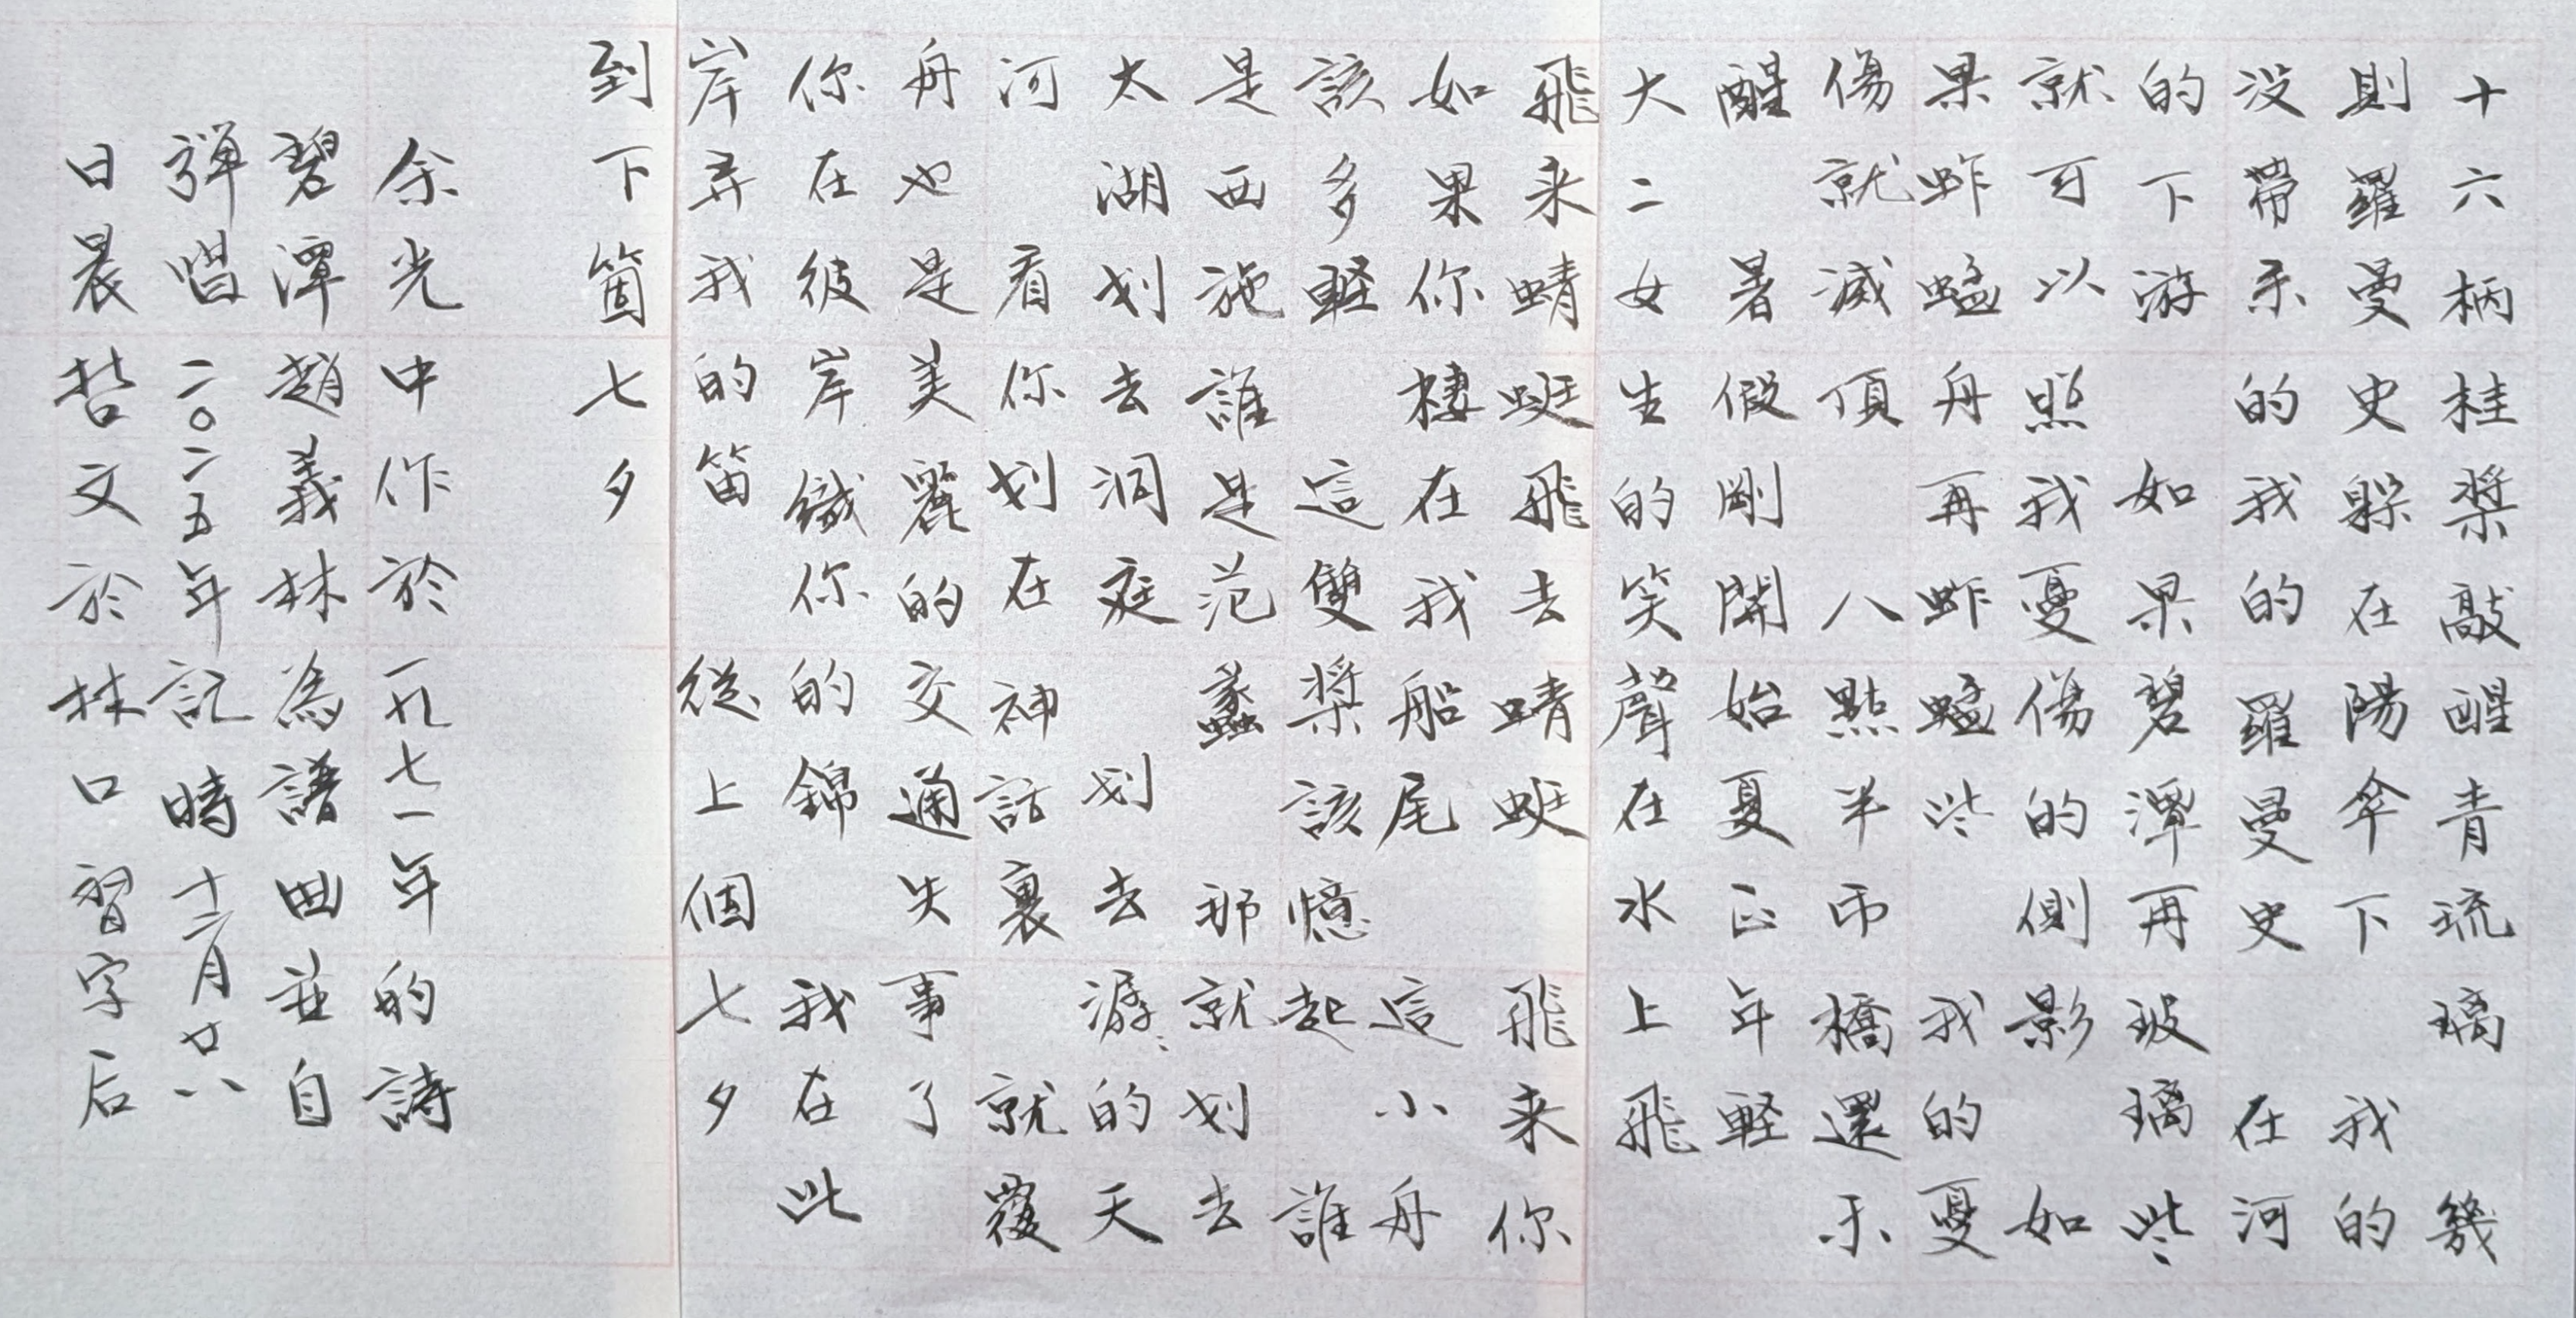 十六柄桂槳敲醒青琉璃 幾
則羅曼史躲在陽傘下 我的
没帶來的我的羅曼史 在河
的下游 如果碧潭再玻璃些
就可以照我憂傷的側影 如
果蚱蜢舟再蚱蜢些 我的憂
傷就滅頂 八點半吊橋還未
醒 暑假剛開始夏正年軽
大二女生的笑聲在水上飛
飛来蜻蜓飛去蜻蜓 飛来你
如果你棲在我船尾 這小舟
該多軽 這雙槳該憶起 誰
是西施誰是范蠡 那就划去
太湖划去洞庭 划去潺〻的天
河 看你划在神話裏 就覆
舟也是美麗的交通失事了
你在彼岸織你的錦 我在此
岸弄我的笛 從上個七夕
到下箇七夕
余光中作於一九七一年的詩
碧潭趙義林為譜曲並自
弾唱二〇二五年記時十二月廿八
日晨哲文於林口習字后